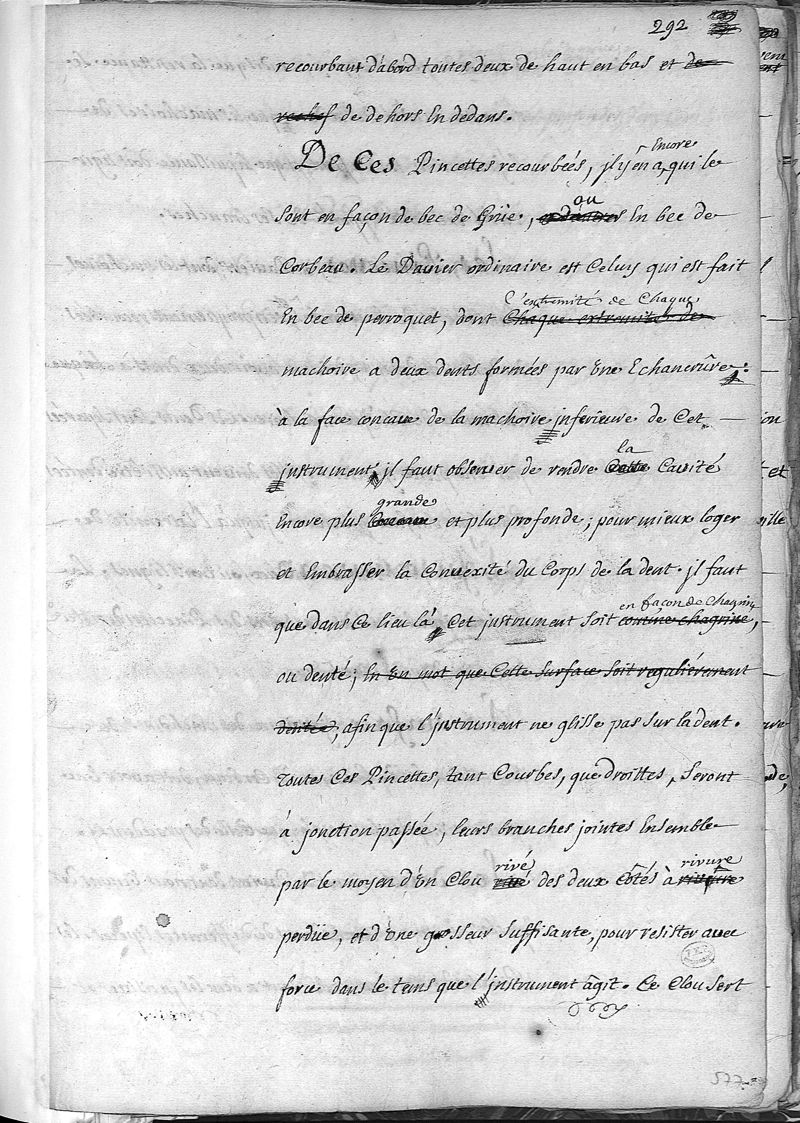 292
recourbant d'abord toutes deux de haut en bas et de
rechef de dehors En dedans.
Encore
De Ces Pincettes recourbeés, jl y en a, qui le
ou
sont en façon de bec de Grüe, En bec de
Corbeau. Le Davier ordinaire est Celuy qui est fait
l'extremité de Chaque
En bec de perroquet, dont Chaque extremité de
machoire a deux dents formées par Une Echancrûre.
à la face concave de la machoire jnferieure de Cet
la
jnstrument, jl faut observer de rendre Cette Cavité
grande
Encore plus et plus profonde; pour mieux loger
et Embrasser la Convexité du Corps de la dent. jl faut
en façon de Chagrin
que dans Ce lieu là, Cet jnstrument soit comme chagrine,
ou denté; En Un mot que Cette surface soit regulièrement
dentée; afin que l'jnstrument ne glisse pas sur la dent.
Toutes Ces Pincettes, tant Courbes, que droittes, seront
à jonction passée, leurs branches jointes Ensemble
rivé rivure
par le moyen d'Un Clou des deux Côtés à
perdüe, et d'Une grosseur suffisante, pour resister avec
force dans le tems que l'jnstrument âgit. Ce Clou sert
577